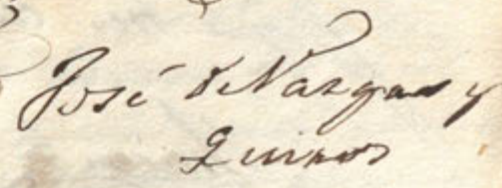 José de Vargas y
Quiros